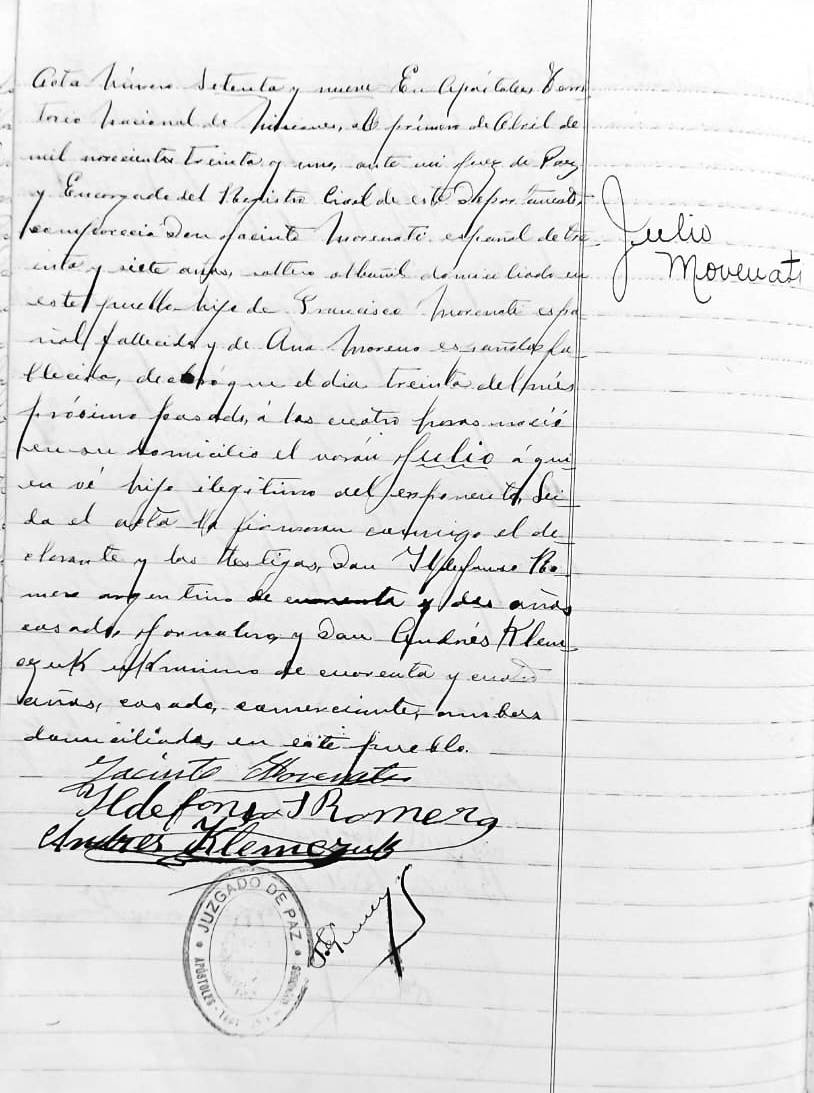 Acta Número Setenta y nueve En Apóstoles Terri
torio Nacional de Misiones, a primero de Abril de
mil novecientos treinta y uno, ante mi Juez de Paz
y Encargado del Registro Civil de este Departamento,
comparecia Don Jacinto Morenate español de tre
inta y siete años, soltero albañil domiciliado en
este pueblo hijo de Francisco Morenate espa
ñol, fallecido y de Ana Moreno española fa
llecida, declaró que el dia treinta del més
próximo pasado, á las cuatro horas nació
en su domicilio el varón Julio á qui
en vé hijo ilegitimo del exponente, Lei
da el acta la firmaron conmigo el de
clarante y los testigos, Don Ildefonso Ro
mero argentino de cuarenta y dos años
casado, jornalero, y Don Andrés Klem
czuk de cuarenta y cuatro
años, casado, comerciante, ambos
domiciliados en este pueblo.
Julio
Movenats
Jacinto Movenats
Ildefonso Romero
Andres Klemczuk
JUZGADO DE PAZ
APÓSTOLES
MISIONES